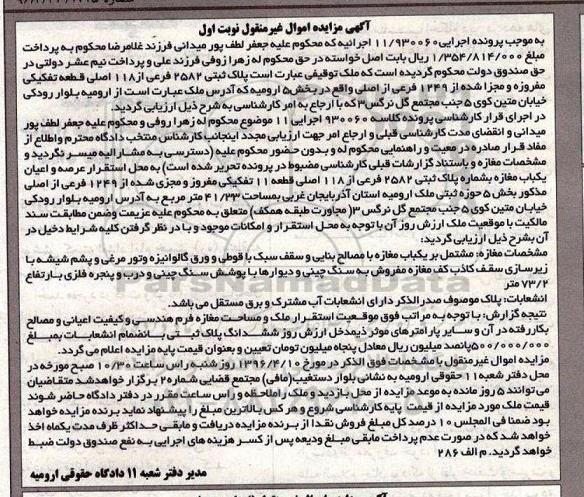 آگهی مزایده اموال غیرمنقول نوبت اول
به موجب پرونده اجرایی ۱۱/۹۳۰۰۶۰ اجرائیه که محکوم علیه جعفر لطف پور میدانی فرزند غلامرضا محکوم به پرداخت
مبلغ ۱/۳۵۴/۸۱۴/۰۰۰ ریال بابت اصل خواسته در حق محکوم له زهرا زوفی فرزند علی و پرداخت نیم عشر دولتی در
حق صندوق دولت محکوم گردیده است که ملک توقیفی عبارت است پلاک ثبتی ۲۵۸۲ فرعی از ۱۱۸ اصلی قطعه تفکیکی
مفروزه و مجزا شده از ۱۲۴۹ فرعی از اصلی واقع در بخش ۵ ارومیه که آدرس ملک عبارت است از ارومیه بلوار رودکی
خیابان متین کوی ۵ جنب مجتمع گل نرگس ۳ که با ارجاع به امر کارشناسی به شرح ذیل ارزیابی گردید.
در اجرای قرار کارشناسی پرونده کلاسه ۹۳۰۰۶۰ اجرایی ۱۱ موضوع محکوم له زهرا روفی و محکوم علیه جعفر لطف پور
میدانی و انقضای مدت کارشناسی قبلی و ارجاع امر جهت ارزیابی مجدد اینجانب کارشناس منتخب دادگاه محترم و اطلاع از
مفاد قرار صادره در معیت و راهنمایی محکوم له و بدون حضور محکوم علیه (دسترسی به مشارالیه میسر نگردید و
مشخصات مغازه و باستناد گزارشات قبلی کارشناسی مضبوط در پرونده تحریر شده است) به محل استقرار عرصه و اعیان
یکباب مغازه بشماره پلاک ثبتی ۲۵۸۲ فرعی از ۱۱۸ اصلی قطعه ۱۱ تفکیکی مفروز و مجزی شده از ۱۲۴۹ فرعی از اصلی
مذکور بخش ۵ حوزه ثبتی ملک ارومیه استان آذربایجان غربی بمساحت ۴۱/۳۳ متر مربع به آدرس ارومیه بلوار رودکی
خیابان متین کوی ۵ جنب مجتمع گل نرگس ۳ (مجاورت طبقه همکف) متعلق به محکوم علیه عزیمت وضمن مطابقت سند
مالکیت با موقعیت ملک ارزش روز آن با توجه به محل استقرار و امکانات موجود و با در نظر گرفتن کلیه شرایط دخیل در
آن بشرح ذیل ارزیابی گردید:
مشخصات مغازه: مشتمل بر یکباب مغازه با مصالح بنایی و سقف سبک با قوطی و ورق گالوانیزه وتور مرغی و پشم شیشه با
زیرسازی سقف کاذب کف مغازه مفروش به سنگ چینی و دیوارها با پوشش سنگ چینی و درب و پنجره فلزی با رتفاع
۷۳/۲ متر
انشعابات: پلاک موصوف صدرالذکر دارای انشعابات آب مشترک و برق مستقل می باشد.
نتیجه گزارش: با توجه به مراتب فوق موقعیت استقرار ملک و مساحت مغازه فرم هندسی و کیفیت اعیانی و مصالح
بکاررفته در آن و سایر پارامترهای موثر ذیمدخل ارزش روز ششدانگ پلاک ثبتی بانضمام انشعابات بمبلغ
۵۰۰/۰۰۰/۰۰۰ پانصد میلیون ریال معادل پنجاه میلیون تومان تعیین و بعنوان قیمت پایه مزایده اعلام می گردد.
مزایده اموال غیرمنقول با مشخصات فوق الذکر در مورخ ۱۳۹۶/۴/۱۰ روز شنبه راس ساعت ۱۰/۳۰ صبح مورخه در
محل دفتر شعبه ۱۱ حقوقی ارومیه به نشانی بلوار دستغیب (مافی) مجتمع قضایی شماره ۲ برگزار خواهد شد متقاضیان
می توانند ۵ روز مانده به موعد مزایده از محل بازدید و ملک را ملاحظه و راس ساعت مقرر در دفتر دادگاه حاضر شوند
قیمت ملک مورد مزایده از قیمت پایه کارشناسی شروع و هر کس بالاترین مبلغ را پیشنهاد نماید برنده مزایده خواهد
بود ضمنا فی المجلس ۱۰ درصد کل مبلغ فروش نقدا از برنده مزایده دریافت و مابقی حداکثر ظرف مدت یکماه اخذ
خواهد شد که در صورت عدم پرداخت مابقی مبلغ ودیعه پس از کسر هزینه های اجرایی به نفع صندوق دولت ضبط
خواهد گردید. م الف ۲۸۶
مدیر دفتر شعبه ۱۱ دادگاه حقوقی ارومیه
ParsNamadData